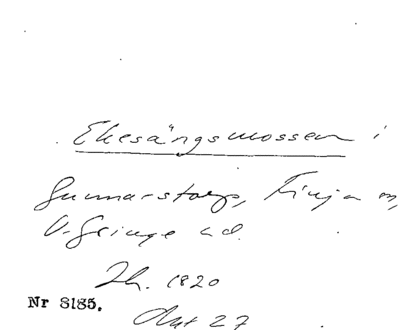 Ekesängsmossen i
Gunnarstorp, Finja sn,
V. Göinge hd.
Lh. 1820
Nr 8185. Akt 27